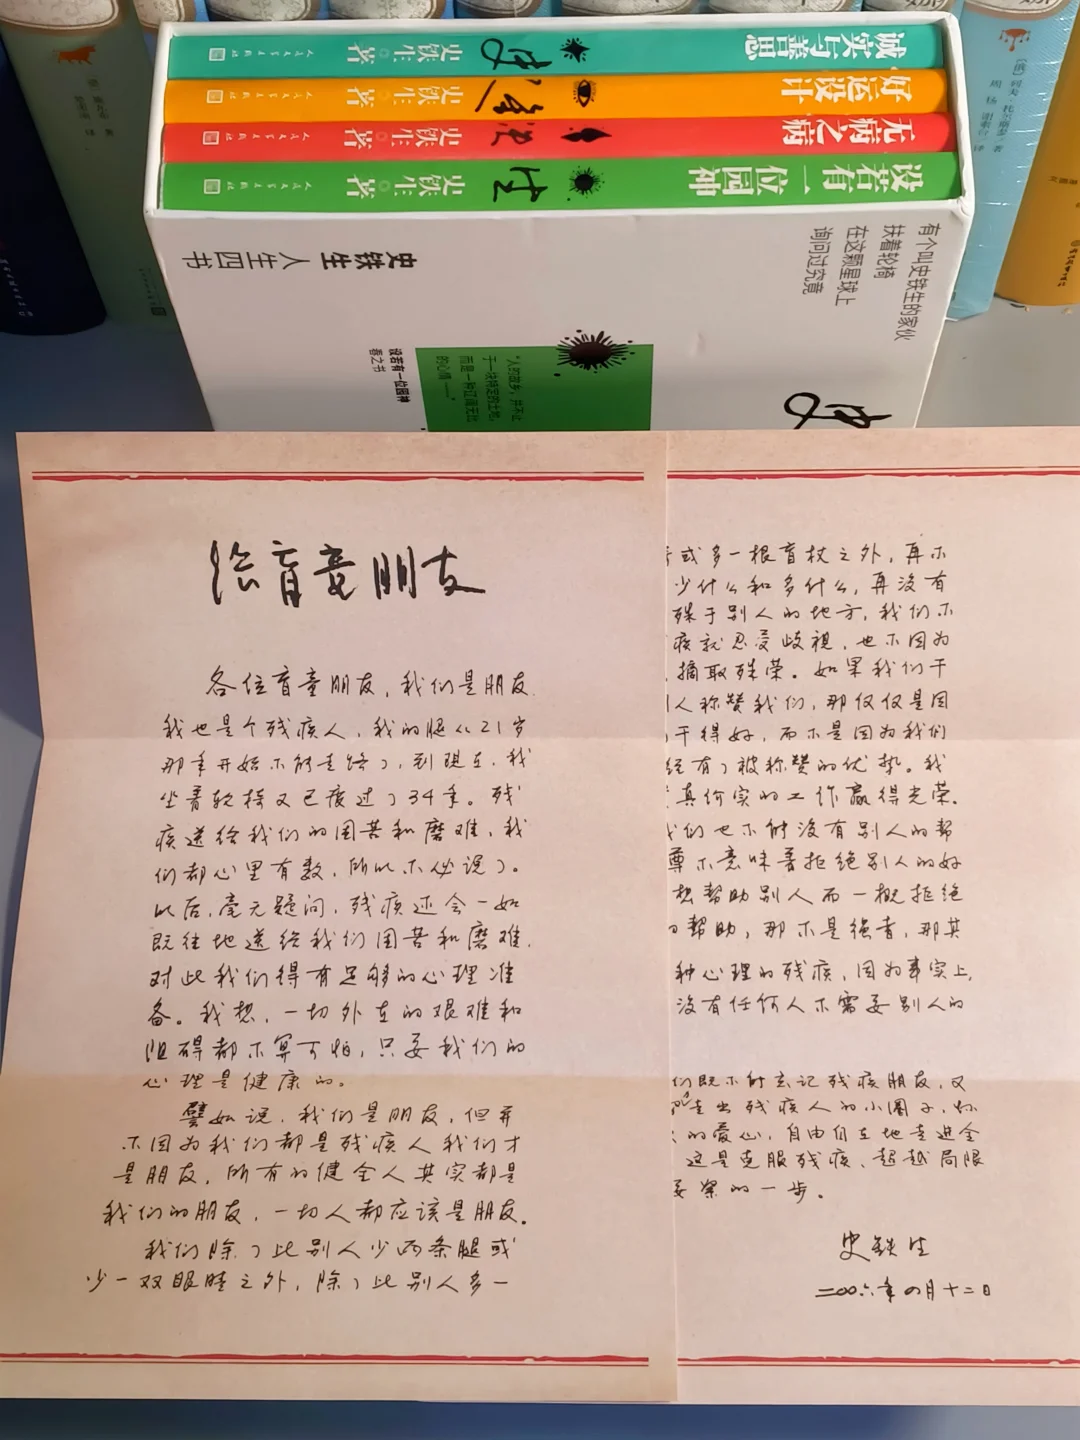 诚实与善思
史铁生 著
人民文学出版社
好运设计
史铁生 著
人民文学出版社
无病之病
史铁生 著
人民文学出版社
设若有一位园神
史铁生 著
人民文学出版社
有个叫史铁生的家伙
扶着轮椅
在这颗星球上
询问过究竟
史铁生 人生四书
设若有一位园神
春之书
“人的故乡，并不止
于一块特定的土地，
而是一种辽阔无比
的心情……”
史
给盲童朋友
各位盲童朋友，我们是朋友
我也是个残疾人，我的腿从21岁
那年开始不能走路了，到现在，我
坐着轮椅又已度过了34年。残
疾送给我们的困苦和磨难，我
们都心里有数，所以不必说了。
以后，毫无疑问，残疾还会一如
既往地送给我们困苦和磨难，
对此我们得有足够的心理准
备。我想，一切外在的艰难和
阻碍都不算可怕，只要我们的
心理是健康的。
譬如说，我们是朋友，但并
不因为我们都是残疾人我们才
是朋友，所有的健全人其实都是
我们的朋友，一切人都应该是朋友。
我们除了比别人少两条腿或
少一双眼睛之外，除了比别人多一
或多一根盲杖之外，再不
少什么和多什么，再没有
殊于别人的地方，我们不
疾就忍受歧视，也不因为
摘取殊荣。如果我们干
人称赞我们，那仅仅是因
干得好，而不是因为我们
经有了被称赞的优势。我
真价实的工作赢得光荣。
们也不能没有别人的帮
尊不意味着拒绝别人的好
想帮助别人而一概拒绝
帮助，那不是强者，那其
种心理的残疾，因为事实上，
没有任何人不需要别人的
们既不能忘记残疾朋友，又
走出残疾人的小圈子，怀
的爱心，自由自在地走进全
这是克服残疾、超越局限
要紧的一步。
史铁生
二00六年四月十二日